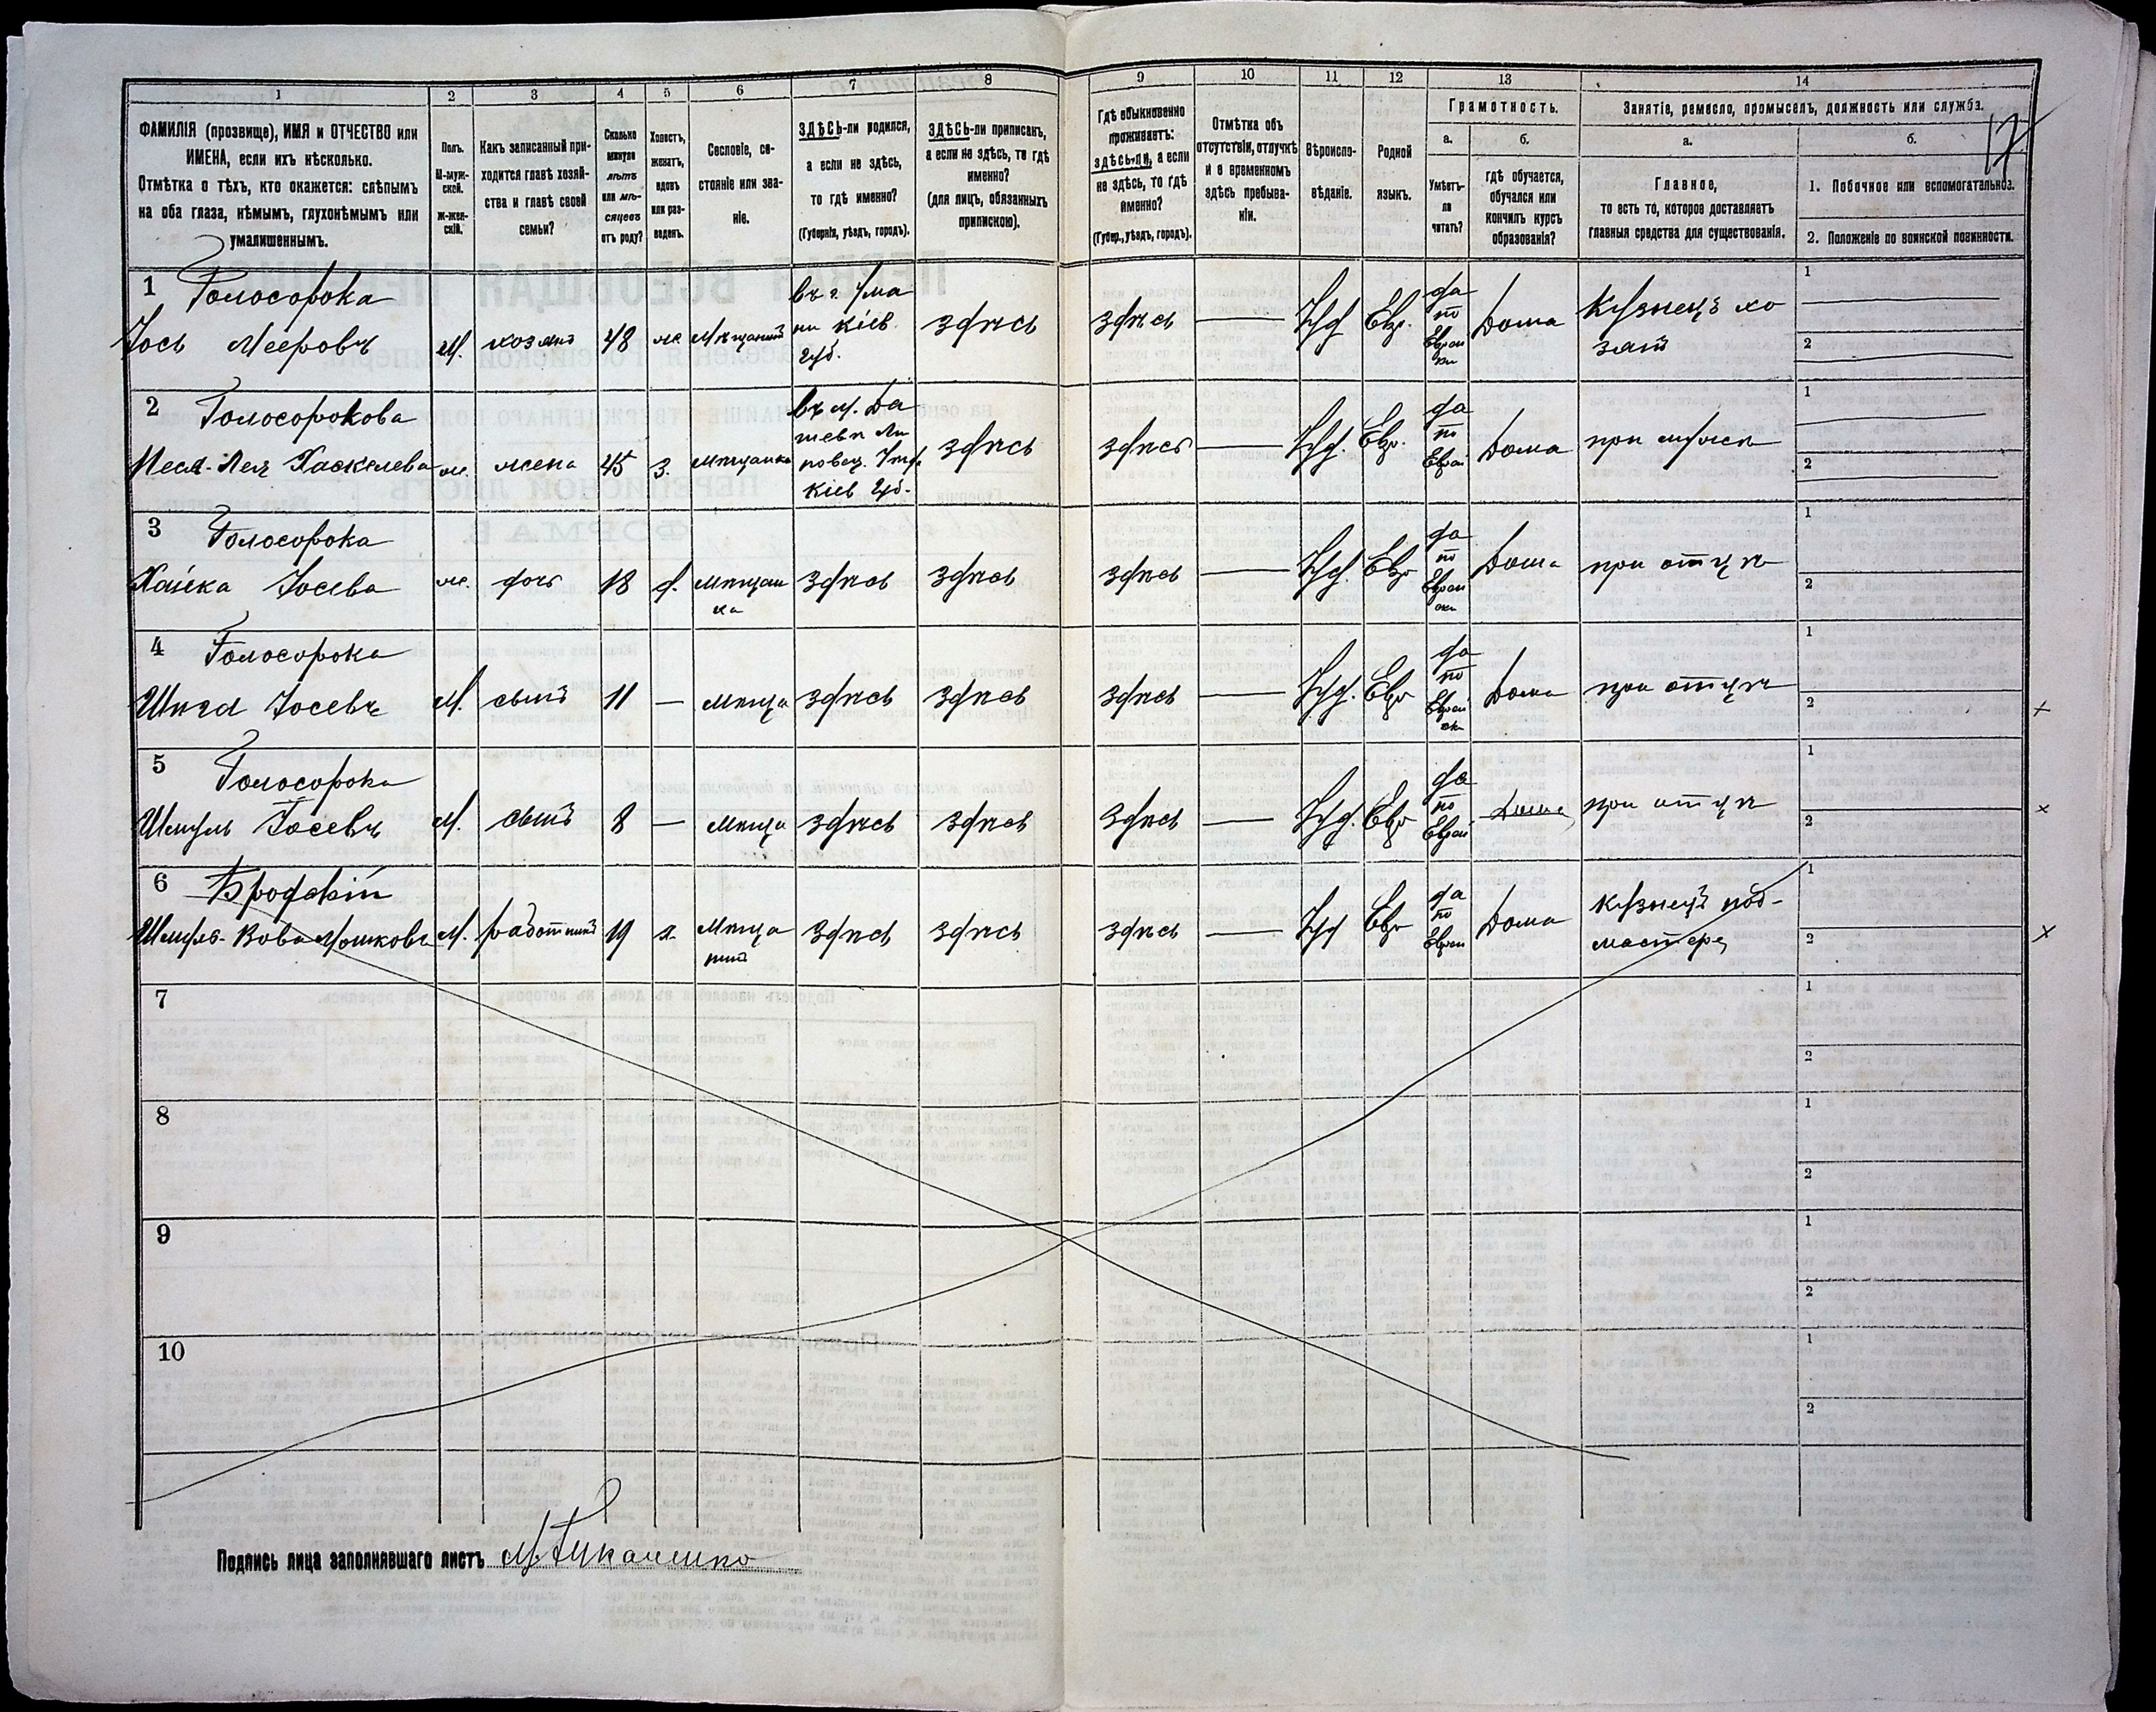 1 2 3 4 5 6 7 8 9 10 11 12 13 14
17
ФАМИЛІЯ (прозвище), ИМЯ и ОТЧЕСТВО или
ИМЕНА, если ихъ нѣсколько.
Отмѣтка о тѣхъ, кто окажется: слѣпымъ
на оба глаза, нѣмымъ, глухонѣмымъ или
умалишеннымъ.
Полъ.
М-муж-
ской.
Ж-жен-
скій.
Какъ записанный при-
ходится главѣ хозяй-
ства и главѣ своей
семьи?
Сколько
минуло
лѣтъ
или мѣ-
сяцевъ
отъ роду?
Холостъ,
женатъ,
вдовъ
или раз-
веденъ.
Сословіе, со-
стояніе или зва-
ніе.
ЗДѢСЬ-ли родился,
а если не здѣсь,
то гдѣ именно?
(Губернія, уѣздъ, городъ).
ЗДѢСЬ-ли приписанъ,
а если не здѣсь, то гдѣ
именно?
(для лицъ, обязанныхъ
припискою).
Гдѣ обыкновенно
проживаетъ:
здѣсь-ли, а если
не здѣсь, то гдѣ
именно?
(Губер., уѣздъ, городъ).
Отмѣтка объ
отсутствіи, отлучкѣ
и о временномъ
здѣсь пребыва-
ніи.
Вѣроиспо-
вѣданіе.
Родной
языкъ.
Грамотность.
а.
Умѣетъ-
ли
читать?
б.
гдѣ обучается,
обучался или
кончилъ курсъ
образованія?
Занятіе, ремесло, промыселъ, должность или служба.
а.
Главное,
то есть то, которое доставляетъ
главныя средства для существованія.
б.
1. Побочное или вспомогательное.
2. Положеніе по воинской повинности.
1 Голосорока
Іось Мееровъ
М.
хозяинъ
48
ж.
Мѣщанинъ
въ г. Ума
ни Кіев.
губ.
здѣсь
здѣсь
Іуд
Евр.
да
по
Еврей
ски
Дома
Кузнецъ хо
зяинъ
1
2
2 Голосорокова
Хаскелева
ж.
жена
45
З.
Мѣщанка
въ м. Да
шевѣ Ли
повец.
Кіев губ.
здѣсь
здѣсь
Іуд.
Евр.
да
по
Еврей
Дома
при мужѣ
1
2
3 Голосорока
Хайка Іосева
ж.
дочь
18
д.
Мѣщан
ка
здѣсь
здѣсь
здѣсь
Іуд.
Евр
да
по
Еврей
ски
Дома
при отцѣ
1
2
4 Голосорока
Іосевъ
М.
сынъ
11
—
Мѣща
здѣсь
здѣсь
здѣсь
Іуд.
Евр
да
по
Еврей
ски
Дома
при отцѣ
1
2
5 Голосорока
Шмуль Іосевъ
М.
сынъ
8
—
Мѣща
здѣсь
здѣсь
здѣсь
Іуд.
Евр
да
по
Еврей
Дома
при отцѣ
1
2
6 Бродскій
Шмуль-Вова Мошковъ
М.
работникъ
19
х.
Мѣща
нинъ
здѣсь
здѣсь
здѣсь
Іуд
Евр
да
по
Еврей
Дома
Кузнецъ под-
мастерье
1
2
7
1
2
8
1
2
9
1
2
10
1
2
Подпись лица заполнявшаго листъ